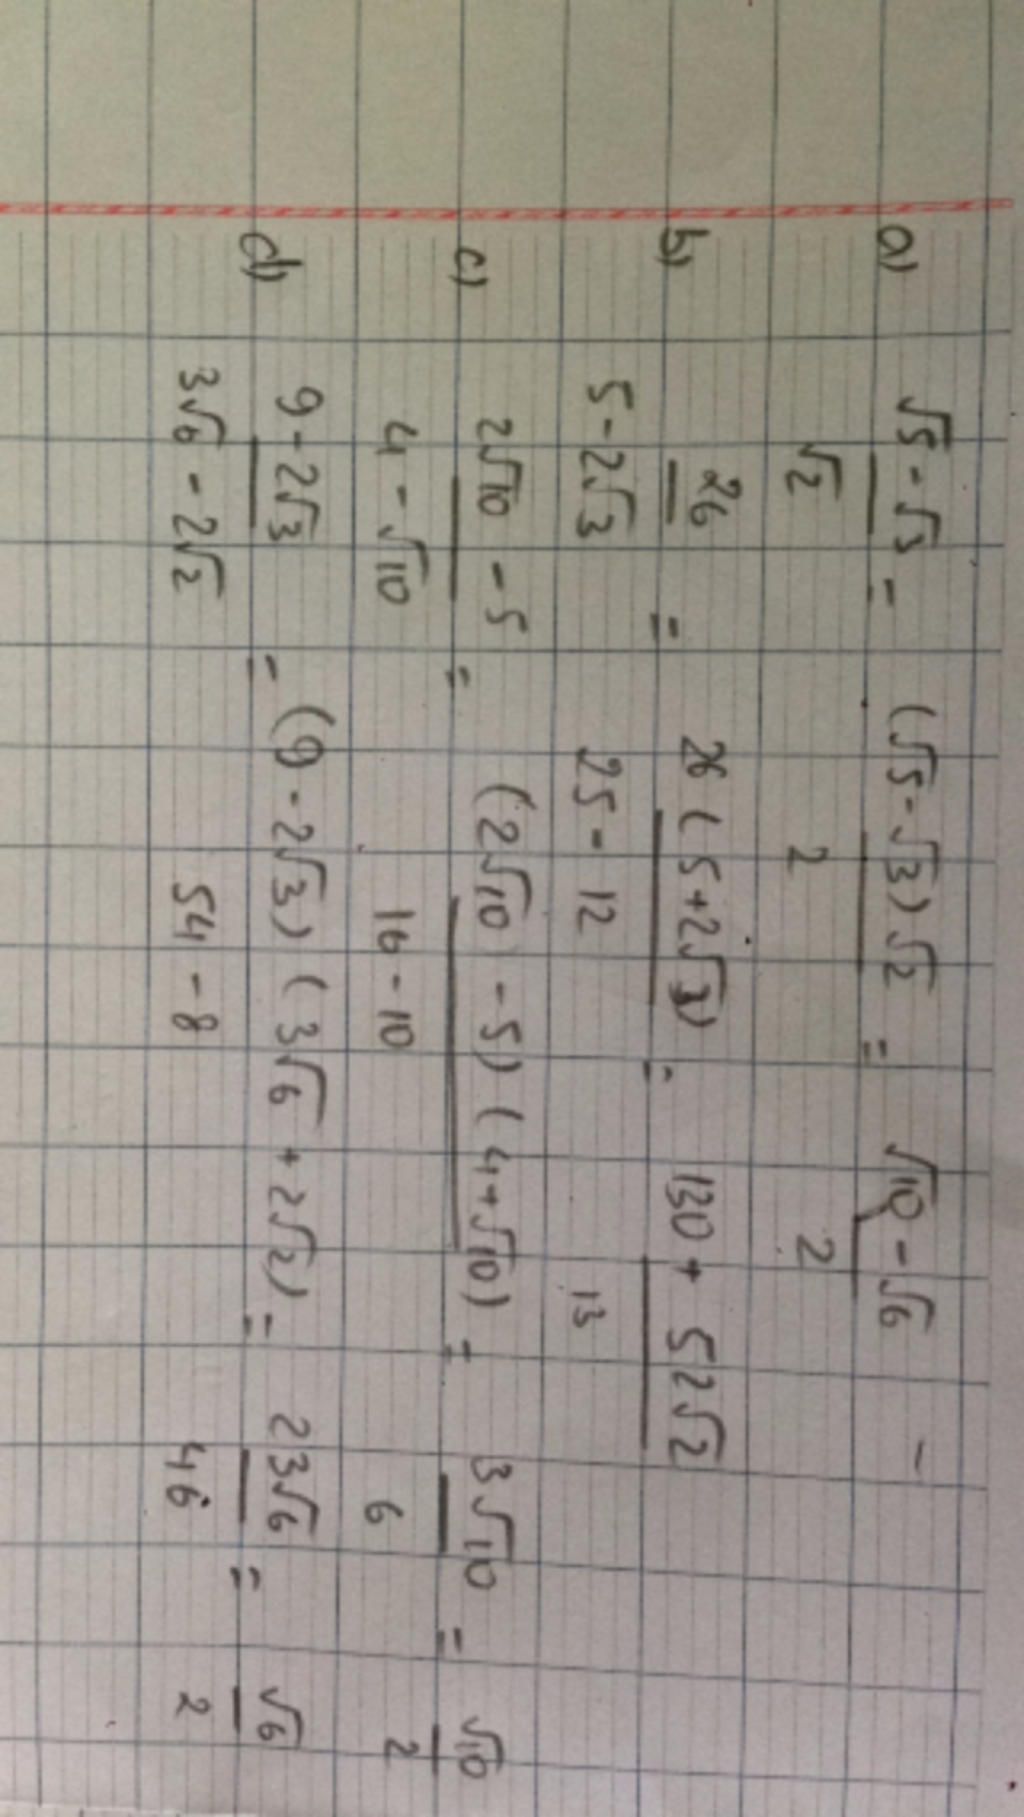 a) √5 - √3 / √2 = (√5 - √3) √2 / 2 = √10 - √6 / 2 -
b) 26 / 5 - 2√3 = 26 ( 5 + 2√3) / 25 - 12 = 130 + 52√2 / 13
c) 2√10 - 5 / 4 - √10 = (2√10 - 5) ( 4 + √10) / 16 - 10 = 3√10 / 6 = √10 / 2
d) 9 - 2√3 / 3√6 - 2√2 = (9 - 2√3) ( 3√6 + 2√2) / 54 - 8 = 23√6 / 46 = √6 / 2